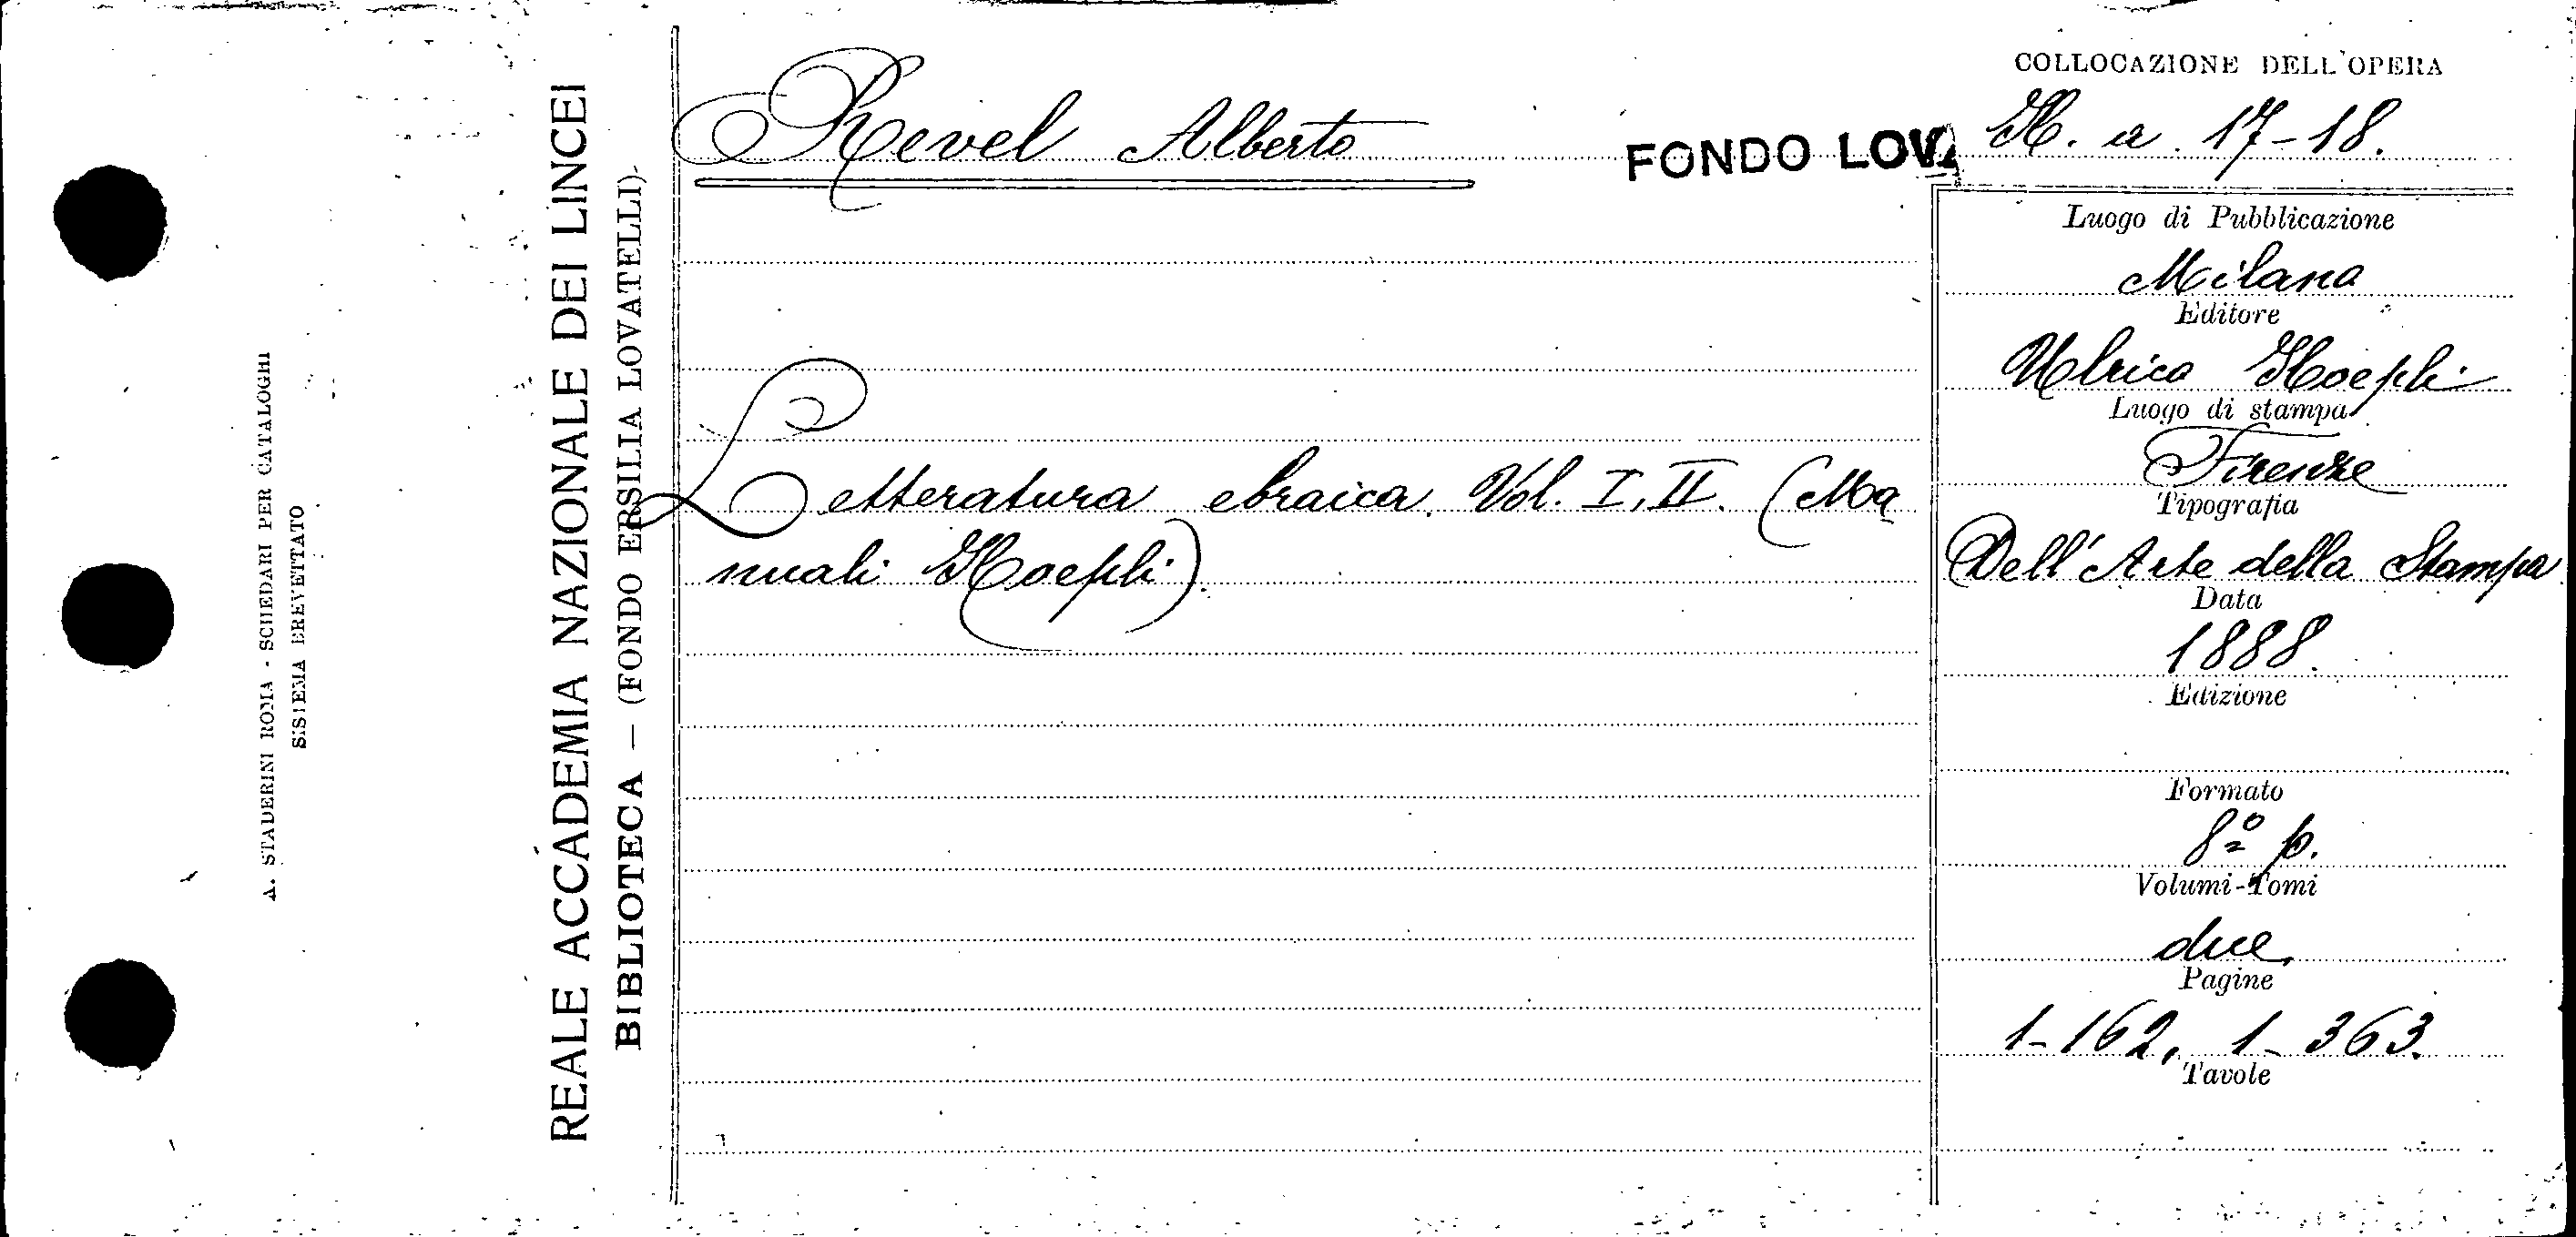 A. STADERINI ROMA - SCHEDARI PER CATALOGHI
SISTEMA BREVETTATO
REALE ACCADEMIA NAZIONALE DEI LINCEI
BIBLIOTECA — (FONDO ERSILIA LOVATELLI)
Revel Alberto
FONDO LOVA
Letteratura ebraica. Vol. I, II. (Ma
nuali Hoepli).
COLLOCAZIONE DELL'OPERA
H. a. 17-18.
Luogo di Pubblicazione
Milano
Editore
Ulrico Hoepli
Luogo di stampa
Firenze
Tipografia
Dell'Arte della Stampa
Data
1888.
Edizione
Formato
8º p.
Volumi-Tomi
due
Pagine
1-162, 1-363.
Tavole